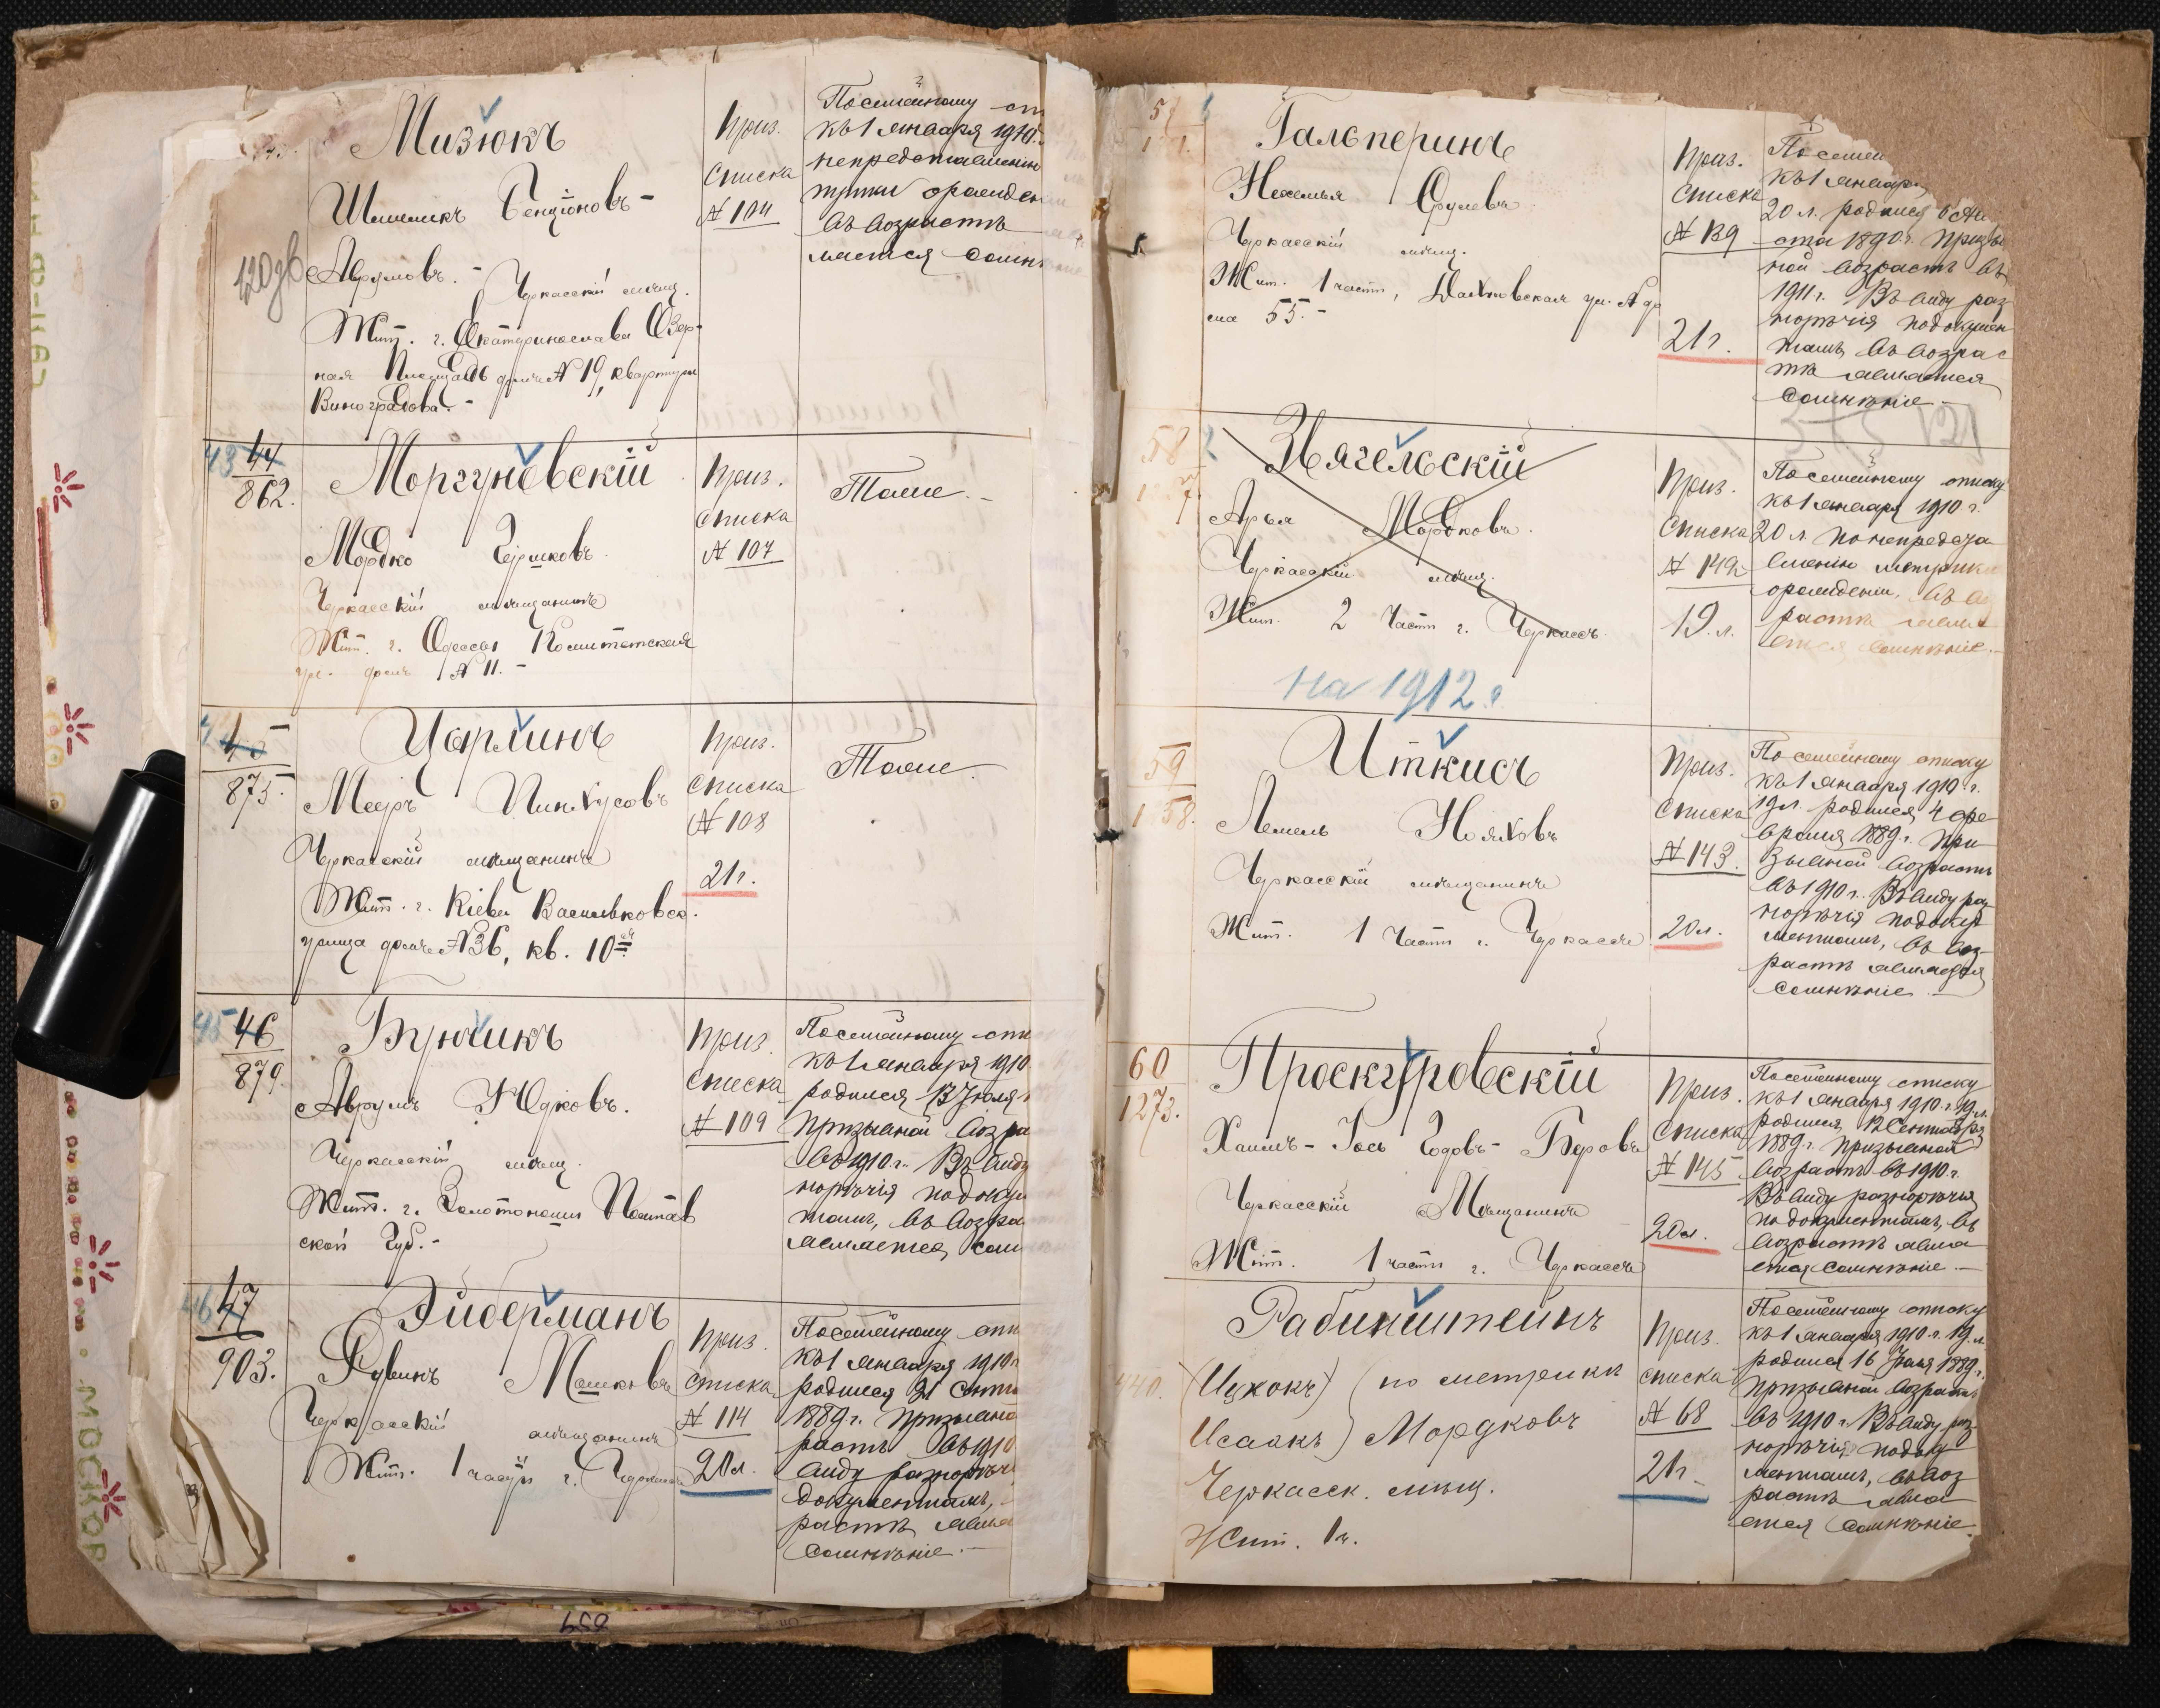 Мизюкъ
Шлемикъ Бенціоновъ-
Аврумовъ. - Черкасскій мѣщ.
Жит. г. Екатеринослава Озер-
ная Площадь домъ № 19, квартира
Виноградова. -
Приз.
Списка
№ 104
Посемейному сп
къ 1 января 1910 г.
непредставленію
въ возрастѣ
43 44
862.
Моргуновскій
Мордко Гершковъ.
Черкасскій мѣщанинъ
Жит. г. Одессы Комитетская
ул. домъ № 11. -
Приз.
Списка
№ 107
Тоже. -
875.
Царлинъ
Мееръ Пинхусовъ
Черкасскій мѣщанинъ
Жит. г. Кіева Васильковск.
улица домъ № 36, кв. 10
Приз.
Списка
№ 108
21 г.
Тоже.
45 46
879.
Брючикъ
Аврумъ Юдковъ.
Черкасскій мѣщ.
Жит. г. Золотоноши Полтав
ской Губ. -
Приз.
Списка
№ 109
Посемейному спи
къ 1 января 1910
родился 13 Іюля
Призывной возра
въ 1910 г. Въ виду
норѣчія подокум
тамъ, въ возра
является сом
46 47
903.
Эйдерманъ
Рувинъ Мошковъ
Черкасскій мѣщанинъ
Жит. 1 части г. Черкассъ
Приз.
Списка
№ 114
20 л.
Посемейному спи
къ 1 января 1910 г
родился 21 Сент
1889 г. Призывно
растъ въ 1910
виду разнорѣч
документамъ,
растѣ явля
сомнѣніе. -
Гальперинъ
Нехемья Срулевъ
Черкасскій мѣщ.
Жит. 1 части, ул. № до
ма 55. -
Приз.
Списка
№ 139
21 г.
Посемей
къ 1 января
20 л. родился 6
ста 1890 г. Призыв
ной возрастъ въ
1911 г. Въ виду раз
норѣчія подокумен
тамъ въ возрас
тѣ является
сомнѣніе -
58
Звягельскій
Арья Мордковъ.
Черкасскій мѣщ.
Жит. 2 Части г. Черкассъ.
на 1912 г.
Приз.
Списка
№ 142
19. л.
Посемейному списку
къ 1 января 1910 г.
20 л. по непредста
вленію метрики
орожденіи, въ во
растѣ явля
ется сомнѣніе. -
59
Иткисъ
Лемель Нояховъ
Черкасскій мѣщанинъ
Жит. 1 Части г. Черкассъ
Приз.
Списка
№ 143.
20 л.
По семейному списку
къ 1 января 1910 г.
19 л. родился 4 фе
враля 1889 г. При
зывной возрастъ
въ 1910 г. Въ виду раз
норѣчія подоку
ментамъ, въ воз-
растѣ является
сомнѣніе -
60
1273.
Проскуровскій
Хаимъ-Іось Годовъ-Беровъ
Черкасскій Мѣщанинъ
Жит. 1 части г. Черкассъ
Приз.
Списка
№ 145
20 л.
Посемейному списку
къ 1 января 1910 г. 19 л.
родился 12 Сентября
1889 г. Призывной
возрастъ въ 1910 г.
Въ виду разнорѣчія
по документамъ, въ
возрастѣ явля
ется сомнѣніе -
440.
Рабинштейнъ
(Ицхокъ) (по метрики
Исаакъ) Мордковъ
Черкасск. мѣщ.
Жит. 1 ч.
Приз.
Списка
№ 68
21 г.
Посемейному списку
къ 1 января 1910 г. 19 л.
родился 16 Іюля 1889 г.
Призывной возрастъ
въ 1910 г. Въ виду раз
норѣчія подоку
ментамъ, въ воз
растѣ явля
ется сомнѣніе.
МОСКОВ